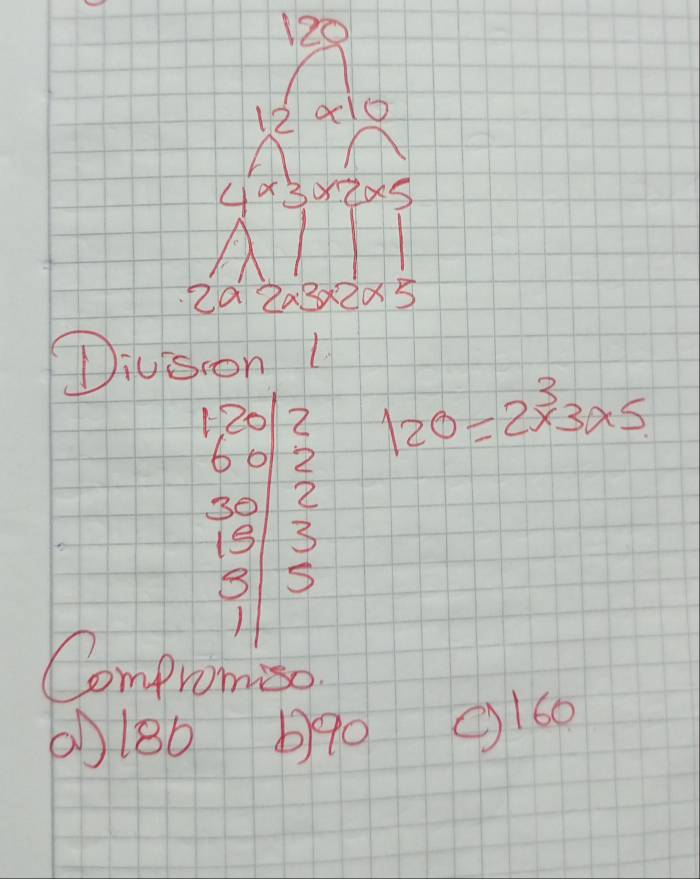 120
12 x 10
4 x 3 x 2 x 5
2 x 2 x 3 x 2 x 5
División 1
120 | 2
60 | 2
30 | 2
15 | 3
5 | 5
1 |
120 = 2³ x 3 x 5
Compromiso.
a) 180 b) 90 c) 160